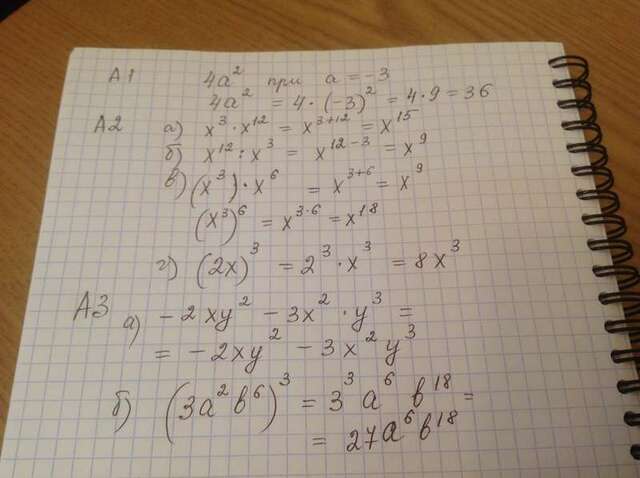 А1 4a² при a = -3
4a² = 4 · (-3)² = 4 · 9 = 36
А2 а) x³ · x¹² = x³⁺¹² = x¹⁵
б) x¹² : x³ = x¹²⁻³ = x⁹
в) (x³) · x⁶ = x³⁺⁶ = x⁹
(x³)⁶ = x³·⁶ = x¹⁸
г) (2x)³ = 2³ · x³ = 8x³
А3 а) -2xy² - 3x² · y³ =
= -2xy² - 3x²y³
б) (3a²b⁶)³ = 3³a⁶ b¹⁸ =
= 27a⁶b¹⁸